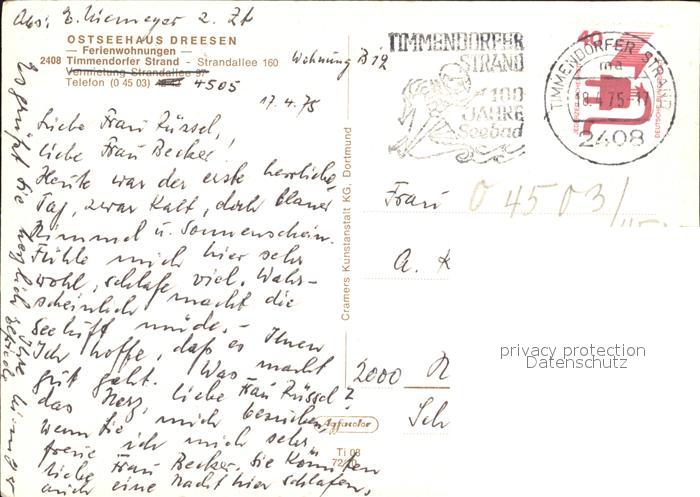 Abs: E. Niemeyer z. Zt
OSTSEEHAUS DREESEN
— Ferienwohnungen —
2408 Timmendorfer Strand - Strandallee 160 Wohnung B 12
Vermietung Strandallee 97
Telefon (0 45 03) 4505
17.4.75
Liebe Frau Züssel,
liebe Frau Becker!
Heute war der erste herrliche
Tag, zwar kalt, doch blauer
Himmel u. Sonnenschein.
Fühle mich hier sehr
wohl, schlafe viel. Wahr-
scheinlich macht die
Seeluft müde. -
Ich hoffe, daß es Ihnen
gut geht. Was macht
das Herz, liebe Frau Züssel?
Wenn Sie mich besuchen,
freue ich mich sehr
liebe Frau Becker. Sie könnten
auch eine Nacht hier schlafen.
Es grüßt Sie herzlich Ihre
Cramers Kunstanstalt KG, Dortmund
TIMMENDORFER
STRAND
100
JAHRE
Seebad
TIMMENDORFER STRAND
ma
18.4.75-17
2408
40
JEDERZEIT SICHERHEIT
DEUTSCHE BUNDESPOST
Frau 04503/
A. K
2000
Sch
Agfacolor
Ti 08
72/
privacy protection
Datenschutz